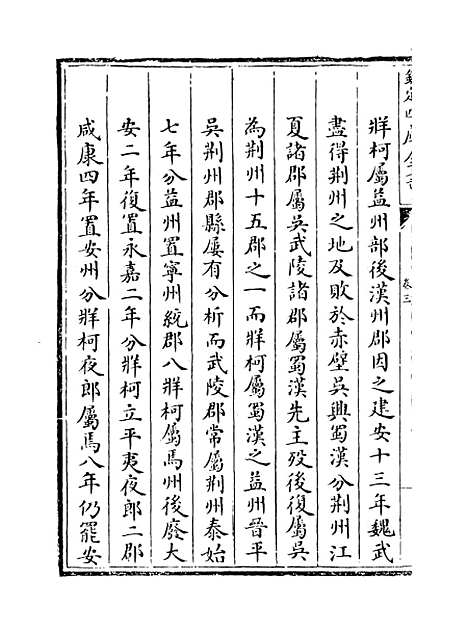 欽定四庫全書
卷三
牂柯屬益州部後漢州郡因之建安十三年魏武
盡得荆州之地及敗於赤壁吳與蜀漢分荆州江
夏諸郡屬吳武陵諸郡屬蜀漢先主殁後復屬吳
為荆州十五郡之一而牂柯屬蜀漢之益州晉平
吳荆州郡縣屢有分析而武陵郡常屬荆州泰始
七年分益州置寧州統郡八牂柯屬馬州後廢大
安二年復置永嘉二年分牂柯立平夷夜郎二郡
咸康四年置安州分牂柯夜郎屬馬八年仍罷安